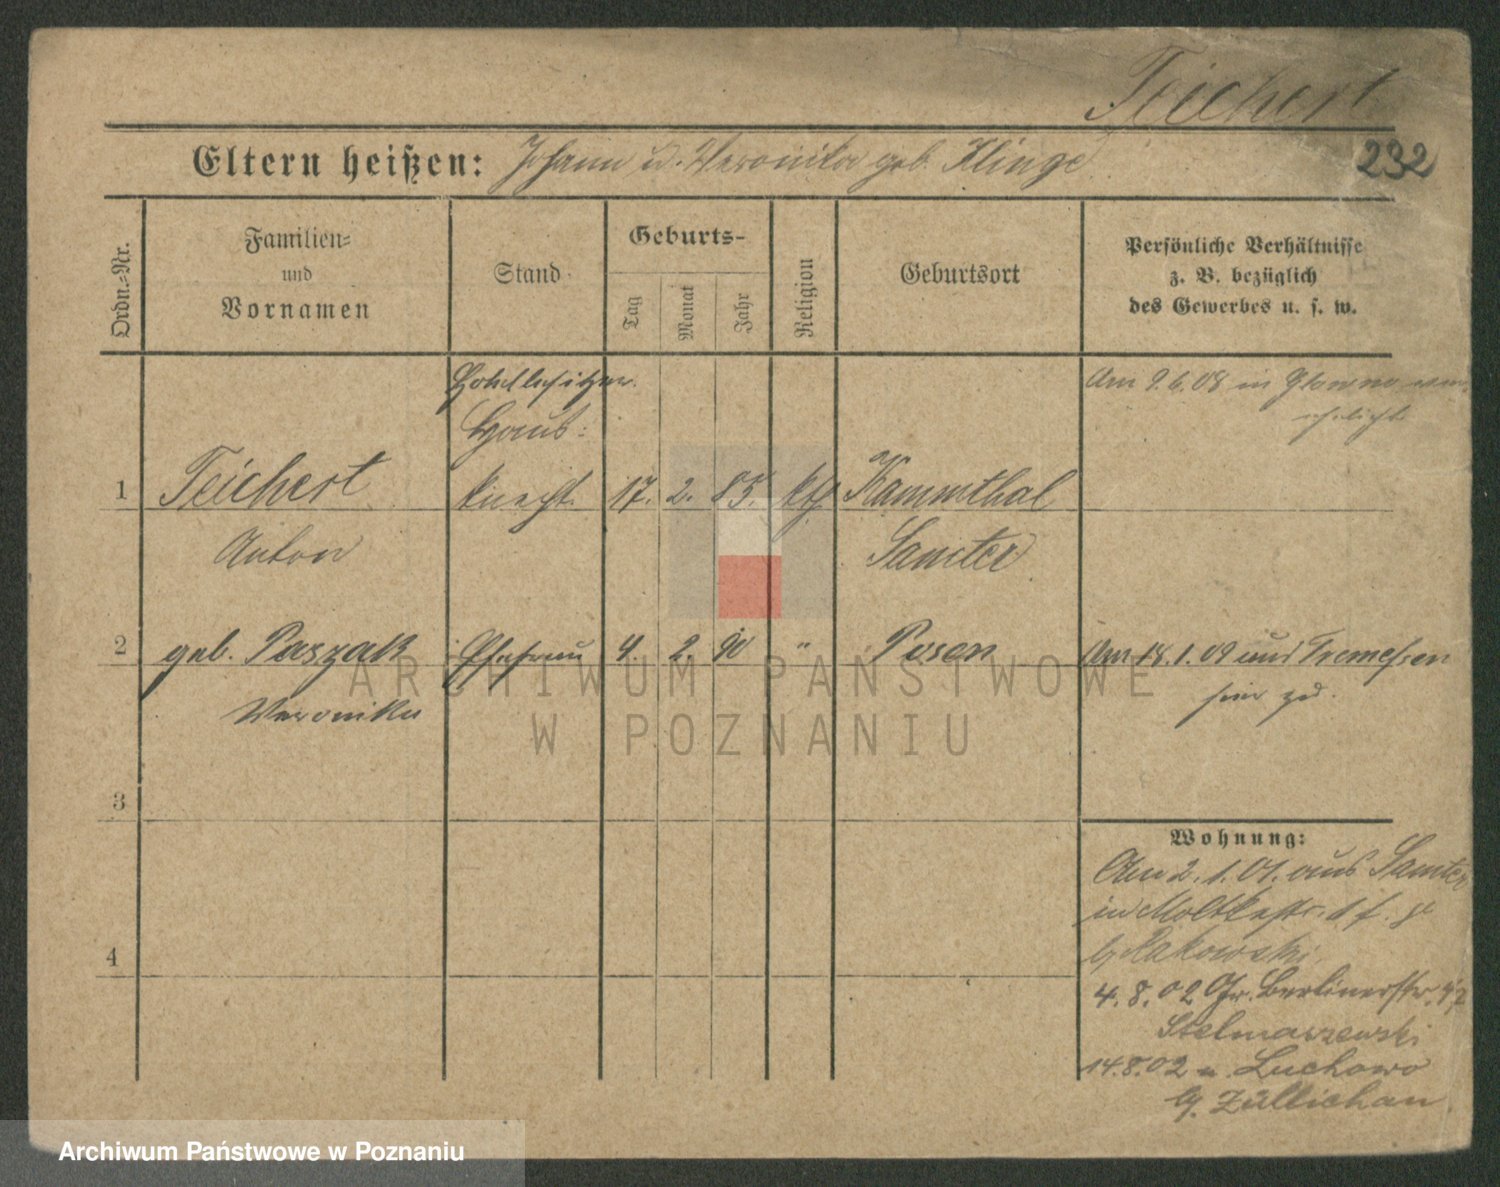 Teichert
Eltern heißen: Johann u. Veronika geb. Klinge
232
Ordn.-Nr.
Familien-
und
Vornamen
Stand
Geburts-
Tag
Monat
Jahr
Religion
Geburtsort
Persönliche Verhältnisse
z. B. bezüglich
des Gewerbes u. s. w.
Hotelbesitzer
Am 9.6.08 in Glowno
Haus-
1 Teichert knecht. 17. 2. 85. kth Kammthal
Anton Samter
2 geb. Paszak Ehefrau 4. 2. 90 " Posen Am 18.1.09 aus Tremessen
Veronika hier zu.
3
4
Wohnung:
Am 2.1.01. aus Samter
in Moltkestr.
b/ Rakowski.
4.8.02 Gr. Berlinerstr. 47
Stelmaszewski
14.8.02 n. Luchowo
b/ Züllichau
ARCHIWUM PAŃSTWOWE
W POZNANIU
Archiwum Państwowe w Poznaniu